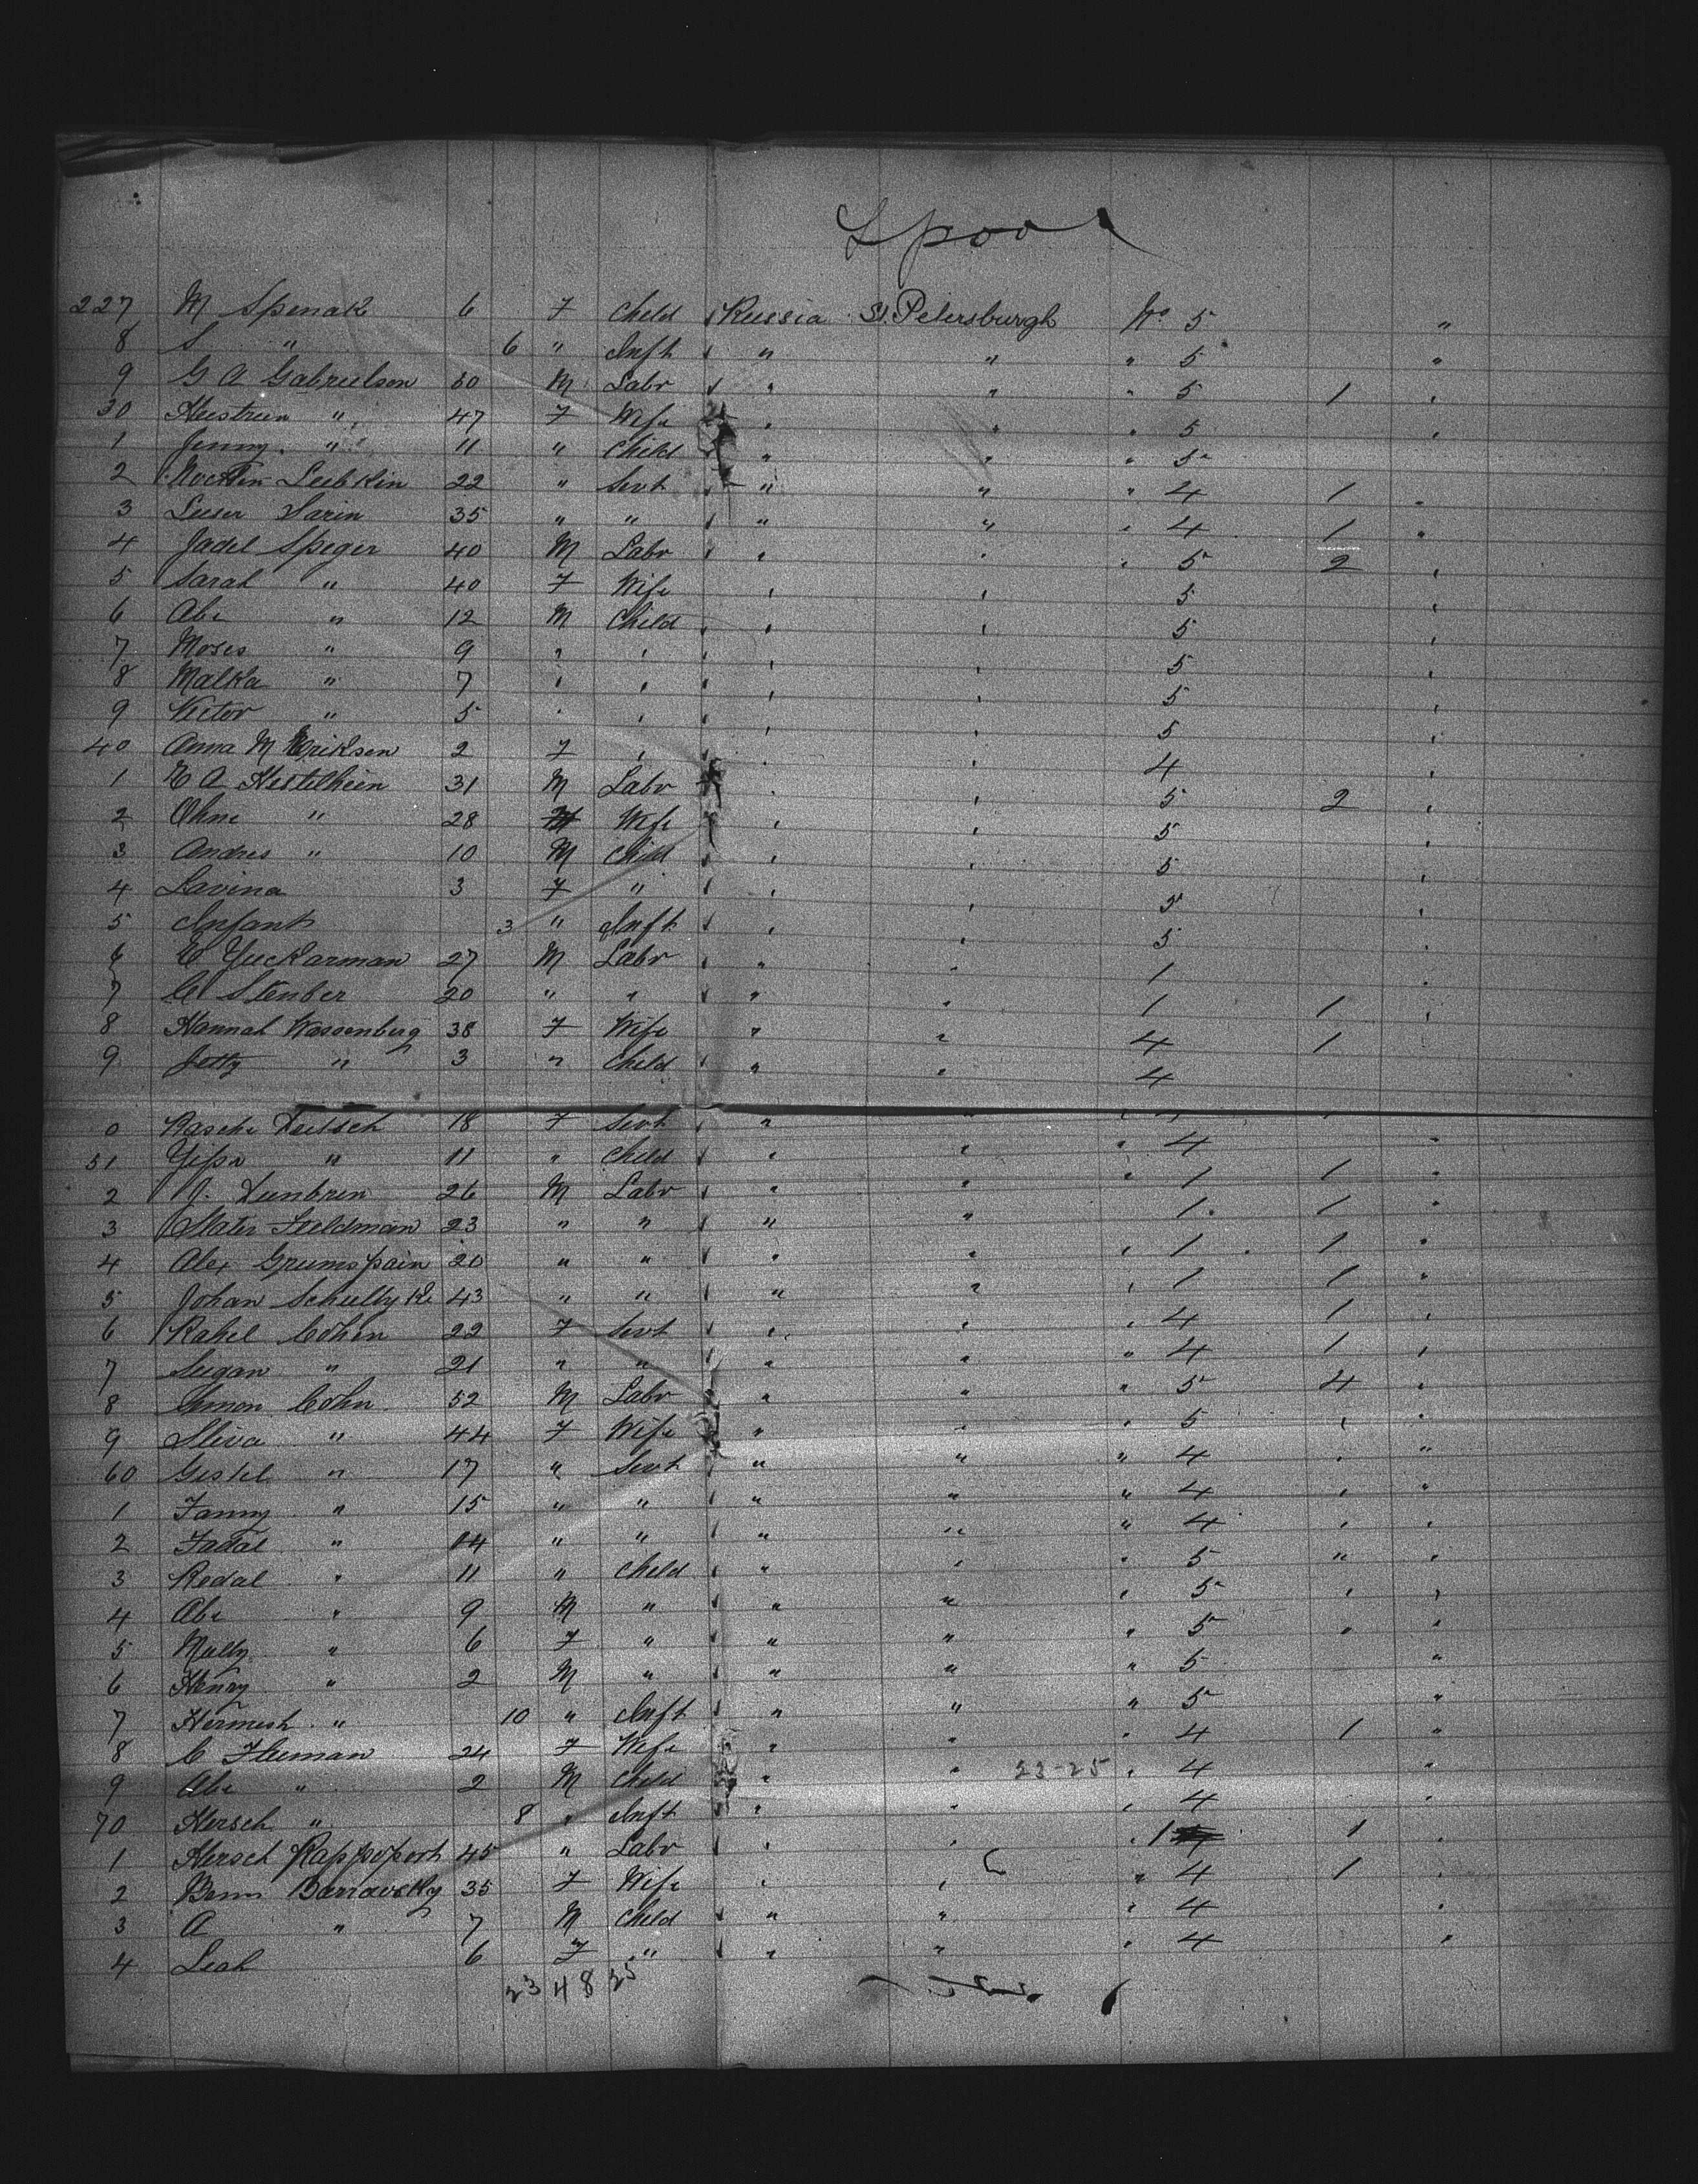 Lpool
227 M Spenak 6 F Child Russia St. Petersburgh No 5 "
8 S " 6 " Inft " " " 5 "
9 G A Gabrielson 50 M Labr " " " 5 1 "
30 " 47 F Wife " " " 5 "
1 Jenny " 11 " Child " " " 5 "
2 Leibkin 22 " Servt " " " 4 1 "
3 Leiser Sarin 35 " " " " " 4 1 "
4 Jadel Speger 40 M Labr " " " 5 2 "
5 Sarah " 40 F Wife " " 5 "
6 Abe " 12 M Child " " 5 "
7 Moses " 9 " " " " 5 "
8 Malka " 7 " " " " 5 "
9 Victor " 5 " " " " 5 "
40 Anna M Eriksen 2 F " " " 4 "
1 E A Hestelhein 31 M Labr " " 5 2 "
2 Ohne " 28 Wife " " 5 "
3 Andres " 10 M Child " " 5 "
4 Lavina 3 F " " " 5 "
5 Infant 3 " Inft " " 5 "
6 E Yuckarman 27 M Labr " " 1 "
7 C Stenber 20 " " " " 1 1 "
8 Hannah Wassenberg 38 F Wife " " 4 1
9 Jetty " 3 " Child " " 4
0 Rasche Deitsch 18 F Servt " " "
51 Yipa " 11 " Child " " " 4 "
2 J. Dunbren 26 M Labr " " " 1 1 "
3 Mates Feeldman 23 " " " " 1 1 "
4 Alex Grumspain 20 " " " " " 1 1 "
5 Johan 43 " " " " " 1 1 "
6 Rahel Cohen 22 F Servt " " " 4 1 "
7 Seegan " 21 " " " " " 4 1 "
8 Simon Cohn 52 M Labr " " " 5 4 "
9 Sliva " 44 F Wife " " " 5 " "
60 Gestel " 17 " Servt " " " 4 " "
1 Fanny " 15 " " " " " 4 " "
2 Fadal " 14 " " " " " 4 " "
3 Redal " 11 " Child " " " 5 " "
4 Abe " 9 M " " " " 5 " "
5 Mally " 6 F " " " " 5 " "
6 Henry " 2 M " " " " 5 "
7 Hermesh " 10 " Inft " " " 5 "
8 C Fleuman 24 F Wife " " " 4 1 "
9 Abe " 2 M Child " " 23-25 " 4 "
70 Hersch " 8 " Inft " " " 4 "
1 Hersch Rappoport 45 " Labr " " " 1 1 "
2 Benni Barravsky 35 F Wife " " " 4 1 "
3 A " 7 M Child " " " 4 "
4 Leah 6 F " " " " 4 "
23 48 25